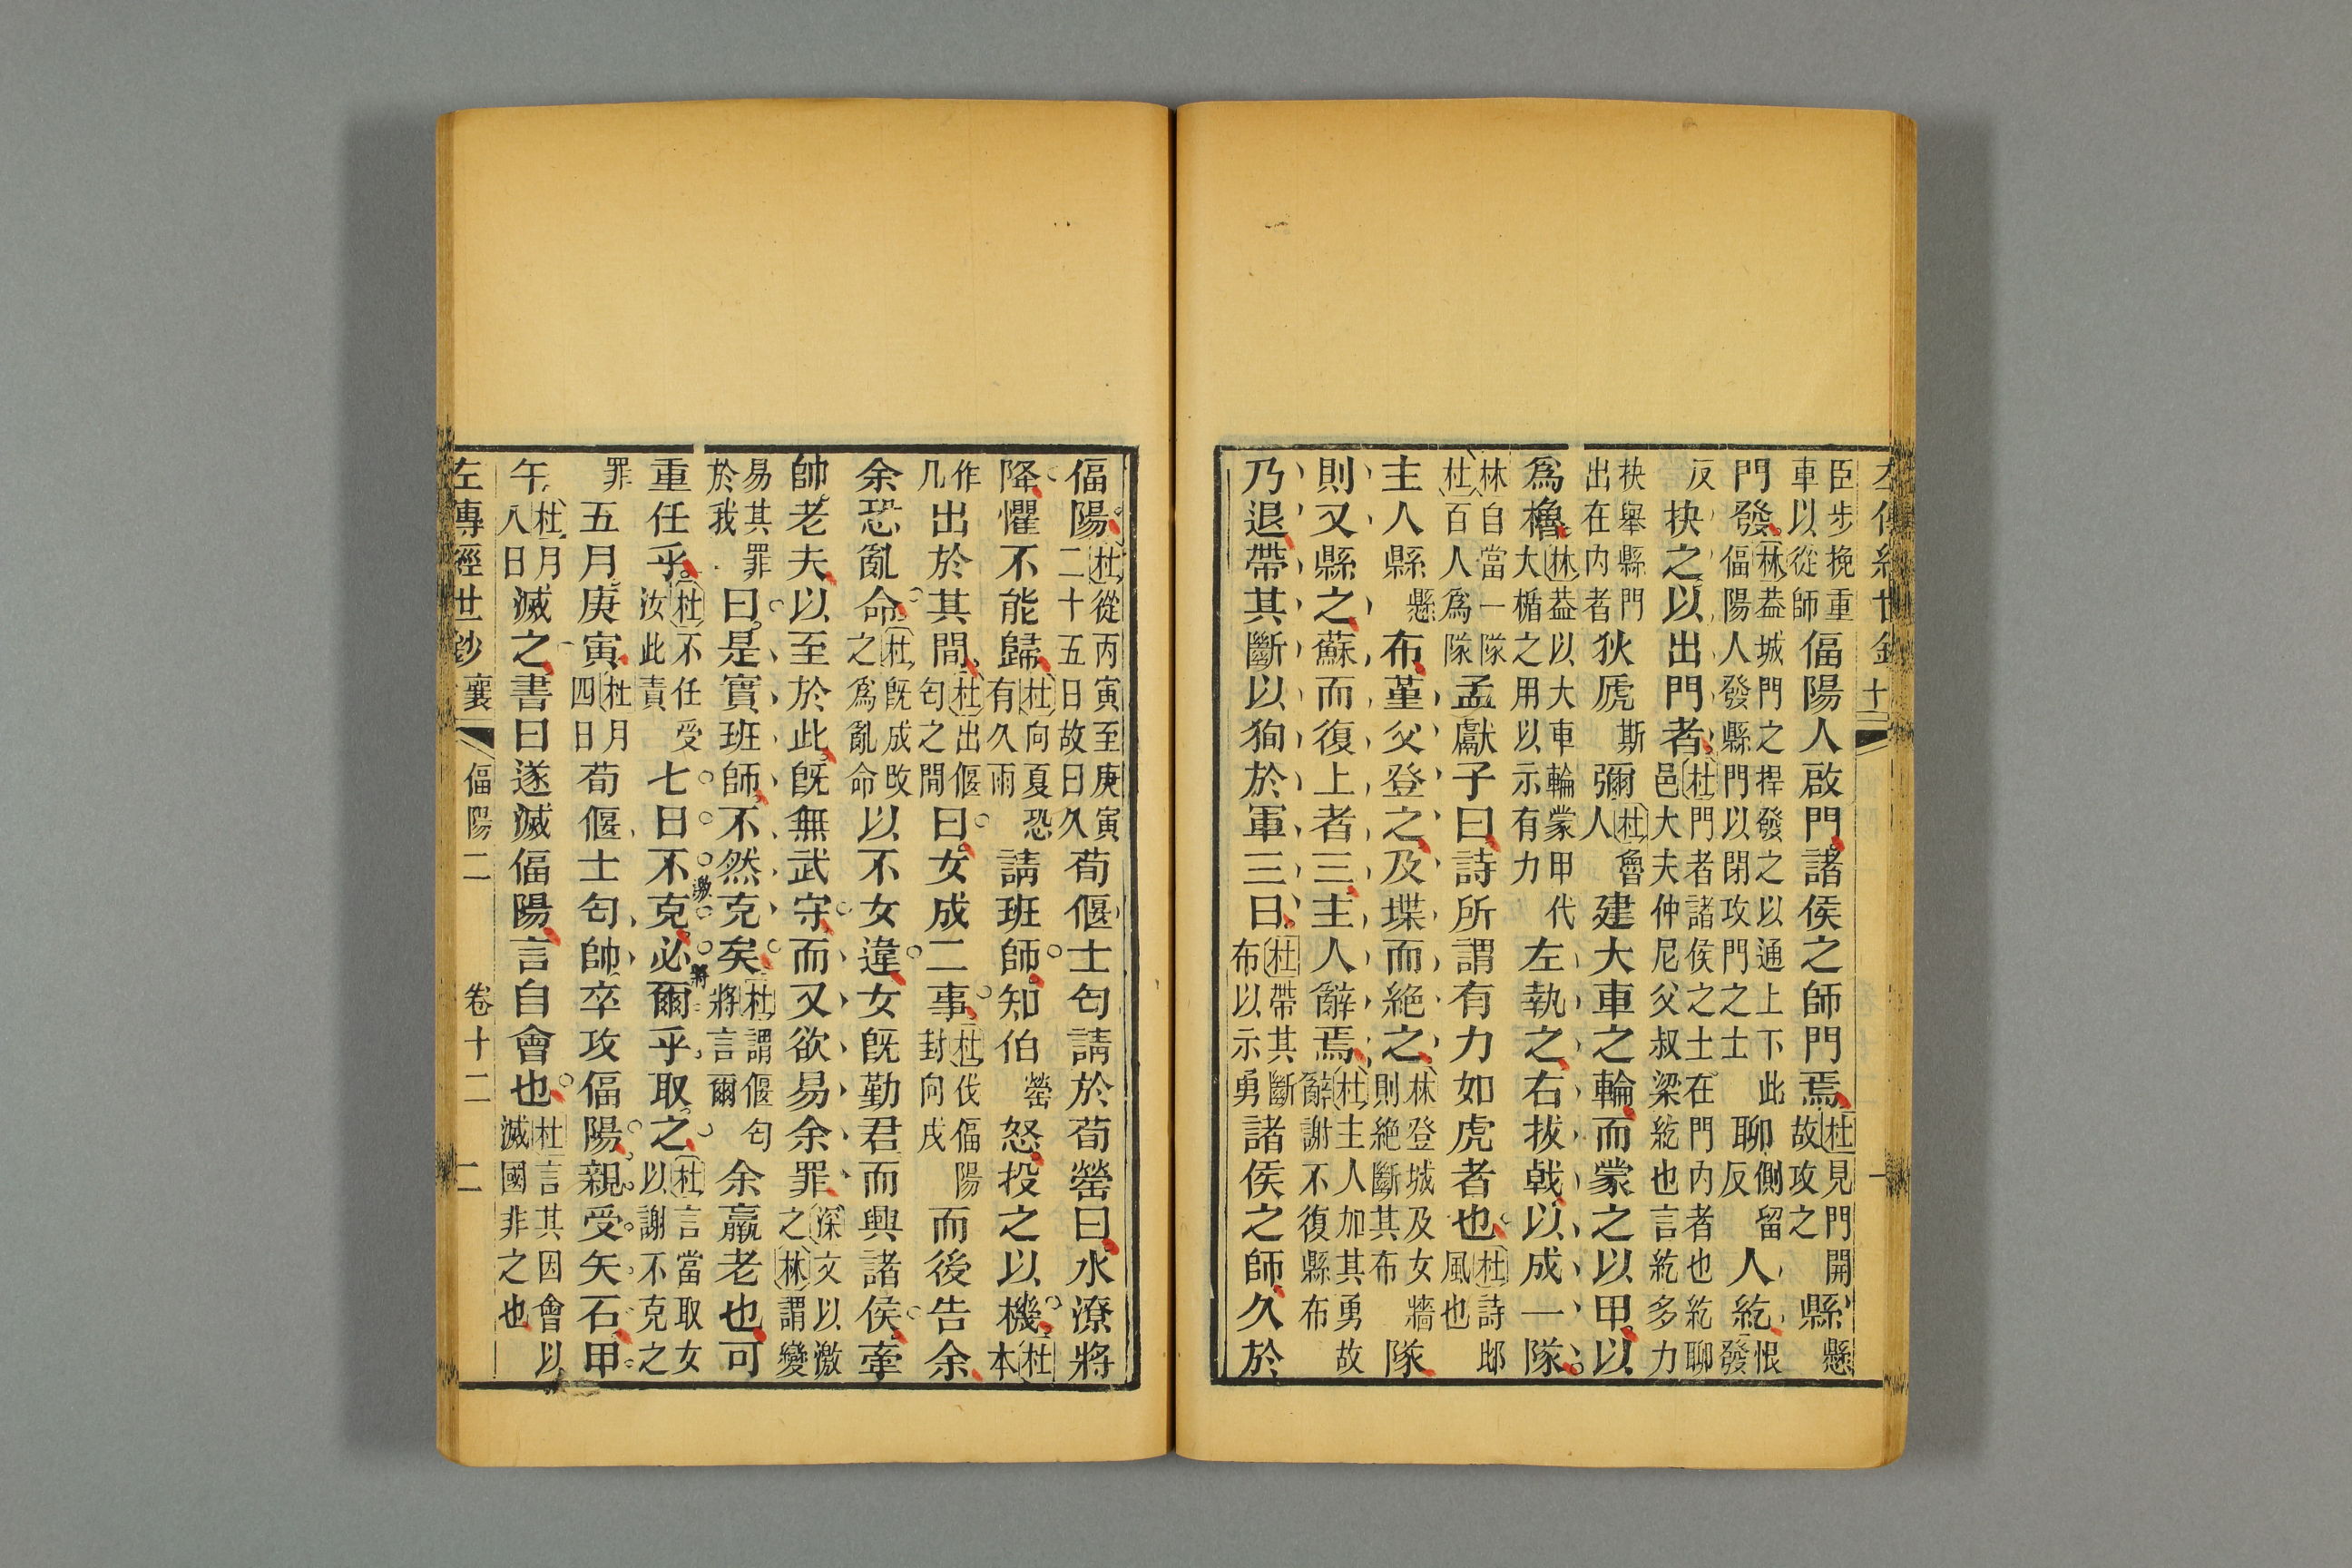 臣步挽重車以從師偪陽人啟門諸侯之師門焉杜見門開故攻之縣懸
門發林葢城門之捍發之以通上下此偪陽人發縣門以閉攻門之士聊側留反人紇恨發
反抉之以出門者杜門者諸侯之士在門內者也紇聊邑大夫仲尼父叔梁紇也言紇多力
抉舉縣門出在內者狄虒斯彌杜魯人建大車之輪而蒙之以甲以
爲櫓林葢以大車輪蒙甲代大楯之用以示有力左執之右拔戟以成一隊
林自當一隊杜百人爲隊孟獻子曰詩所謂有力如虎者也杜詩邶風也
主人縣懸布堇父登之及堞而絕之林登城及女牆則絕斷其布隊
則又縣之蘇而復上者三主人辭焉杜主人加其勇故辭謝不復縣布
乃退帶其斷以狥於軍三日杜帶其斷布以示勇諸侯之師久於
偪陽杜從丙寅至庚寅二十五日故曰久荀偃士匄請於荀罃曰水潦將
降懼不能歸杜向夏恐有久雨請班師知伯罃怒投之以機杜本
作几出於其間杜出偃匄之間曰女成二事杜伐偪陽封向戌而後告余
余恐亂命杜既成改之爲亂命以不女違女既勤君而興諸侯牽
帥老夫以至於此既無武守而又欲易余罪深文以激之林謂變
易其罪於我曰是實班師不然克矣杜謂偃匄將言爾余羸老也可
激
重任乎杜不任受汝此責七日不克必爾乎取之杜言當取女以謝不克之
罪五月庚寅杜月四日荀偃士匄帥卒攻偪陽親受矢石甲
午杜月八日滅之書曰遂滅偪陽言自會也杜言其因會以滅國非之也
左傳經世鈔 襄 偪陽二 卷十二 二